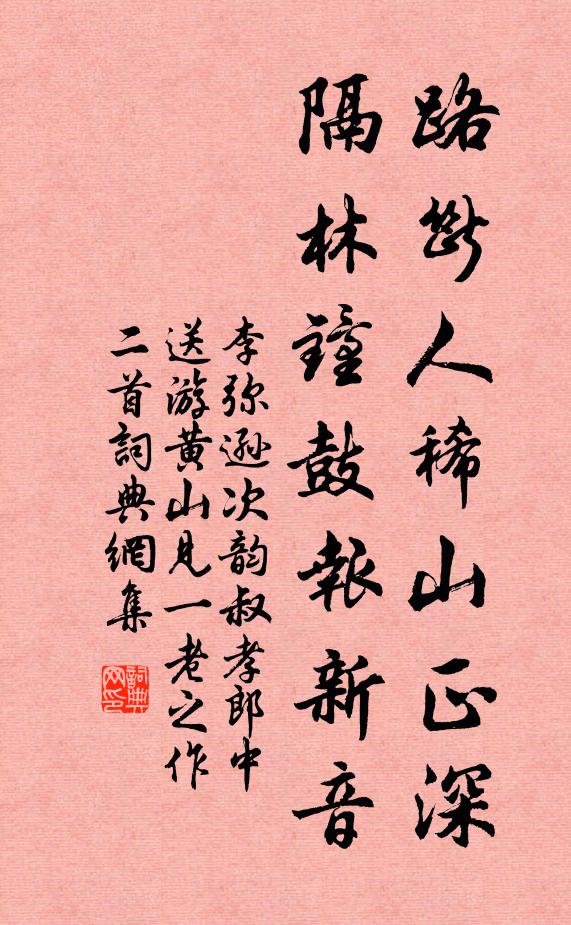 路断人稀山正深
隔林鐘鼓報新音
李弥遜次韵叔孝郎中
送游黄山見一老之作
二首詞典網集
詞典网印